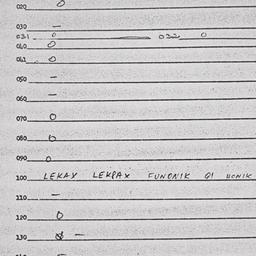 020 0
030 —
031 0 — 032 0
040 0
041 0
050 —
060 —
070 0
080 0
090 0
100 LEKAX LEKPAX FUNONIK GI
110 —
120 0
130 —